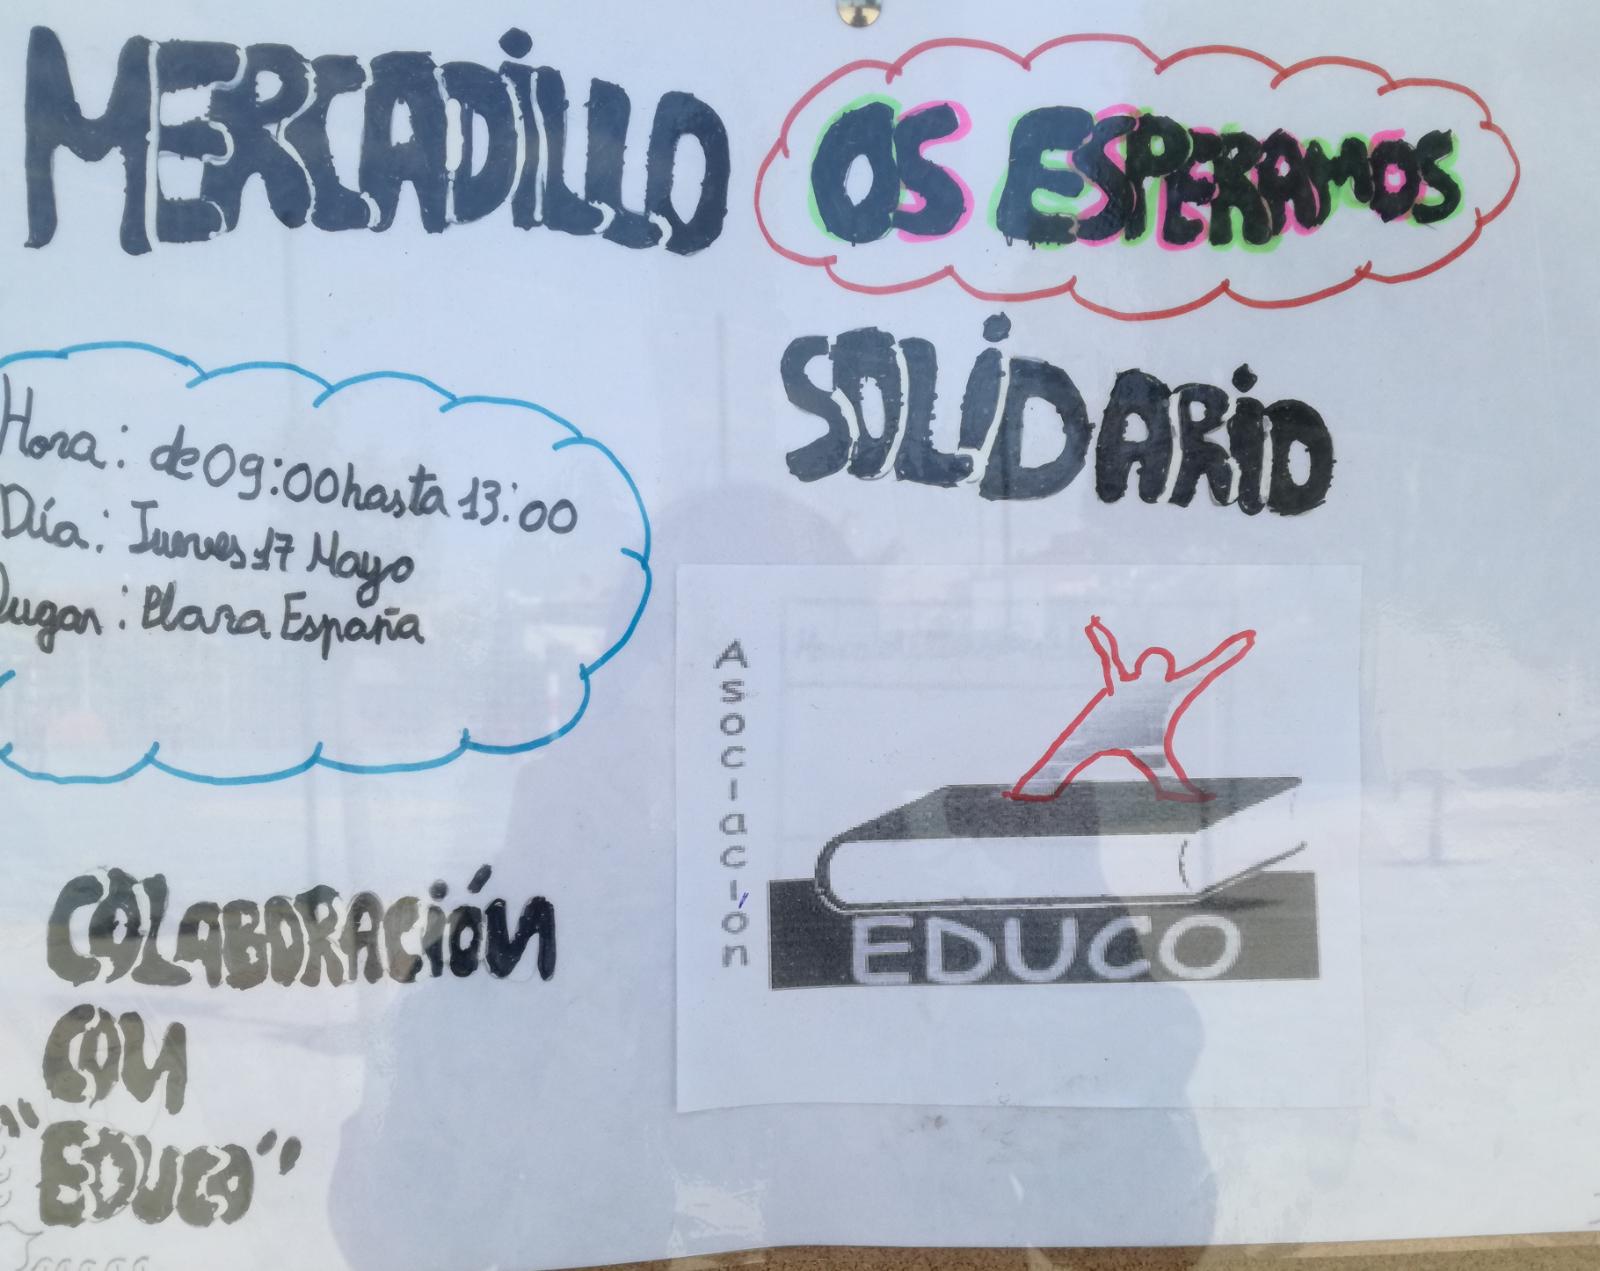 MERCADILLO
OS ESPERAMOS
SOLIDARIO
Hora: de 09:00 hasta 13:00
Día: Jueves 17 Mayo
Lugar: Plaza España
COLABORACIÓN
CON
"EDUCO"
Asociación
EDUCO